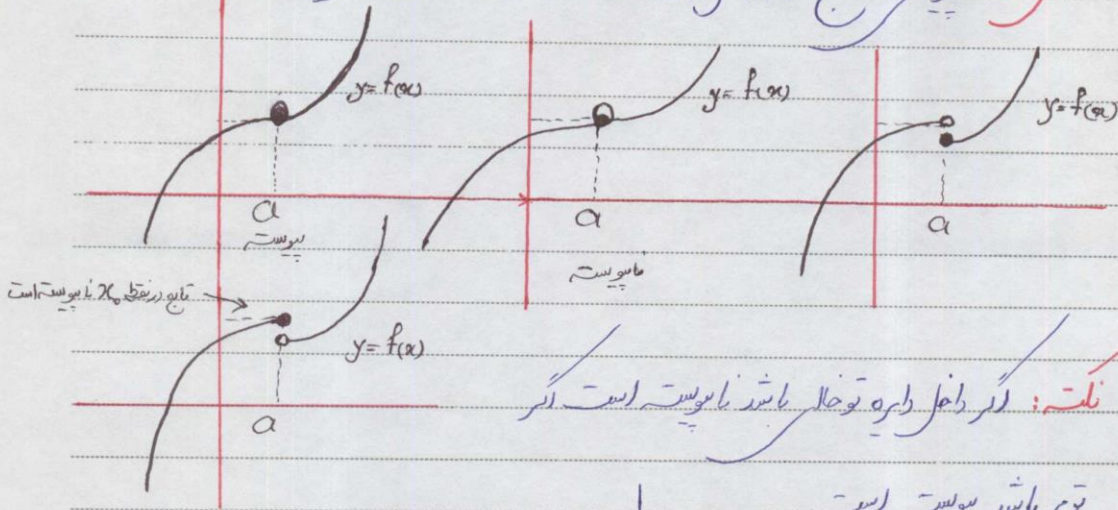 y = f(x) y = f(x) y = f(x)
a a a
پیوسته ناپیوسته
تابع در نقطه x₀ ناپیوسته است
y = f(x)
a
نکته: اگر داخل دایره توخالی باشد ناپیوسته است اگر
توپر باشد پیوسته است